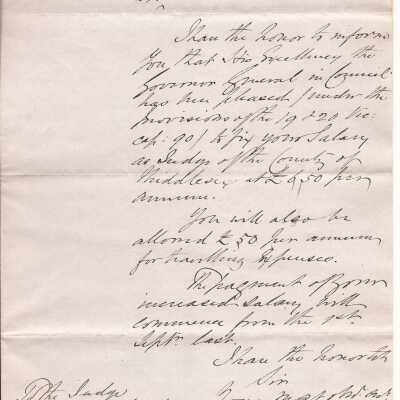 I have the honor to inform
You, that His Excellency the
Governor General in Council
has been pleased /under the
provisions of the 19 & 20 Vic:
cap: 90/ to fix your Salary
as Judge of the County of
Middlesex at £650 per
annum.
You will also be
allowed £50 per annum
for travelling Expenses.
The payment of your
increased salary will
commence from the 1st.
Septr. last.
I have the honor to be
Sir
To The Judge
most obdt.